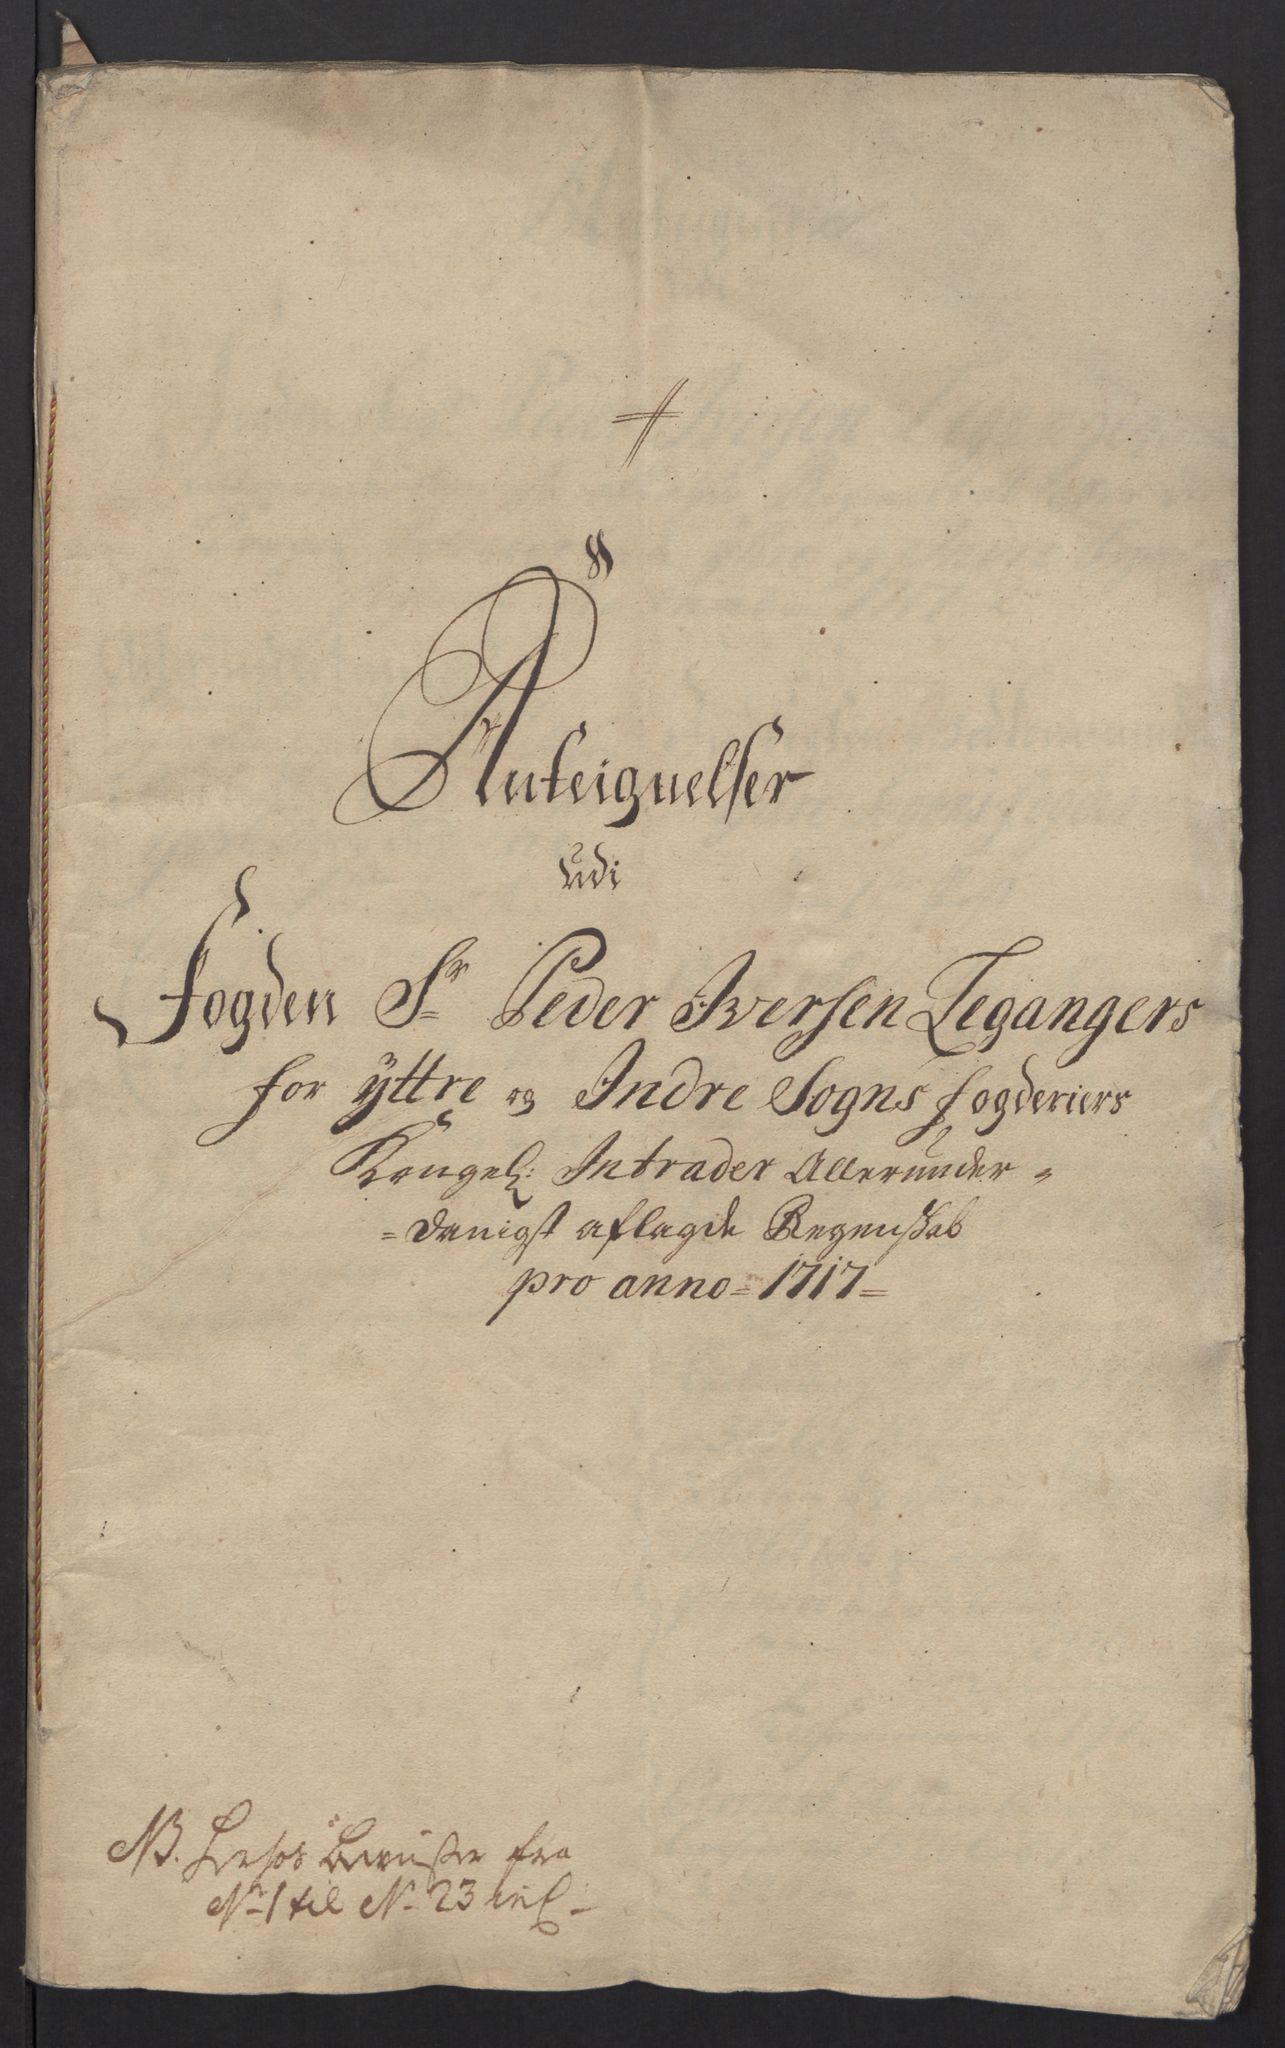 Anteignelser
udi
Fogden Sr Peder Iversen Legangers
for ÿttre og Indre Sogns fogderiers
Kongel: Intrader Allerunder=
=danigst aflagde Regenskab
pro anno = 1717 =
NB. Herhos beviiser fra
No 1 til No 23 incl